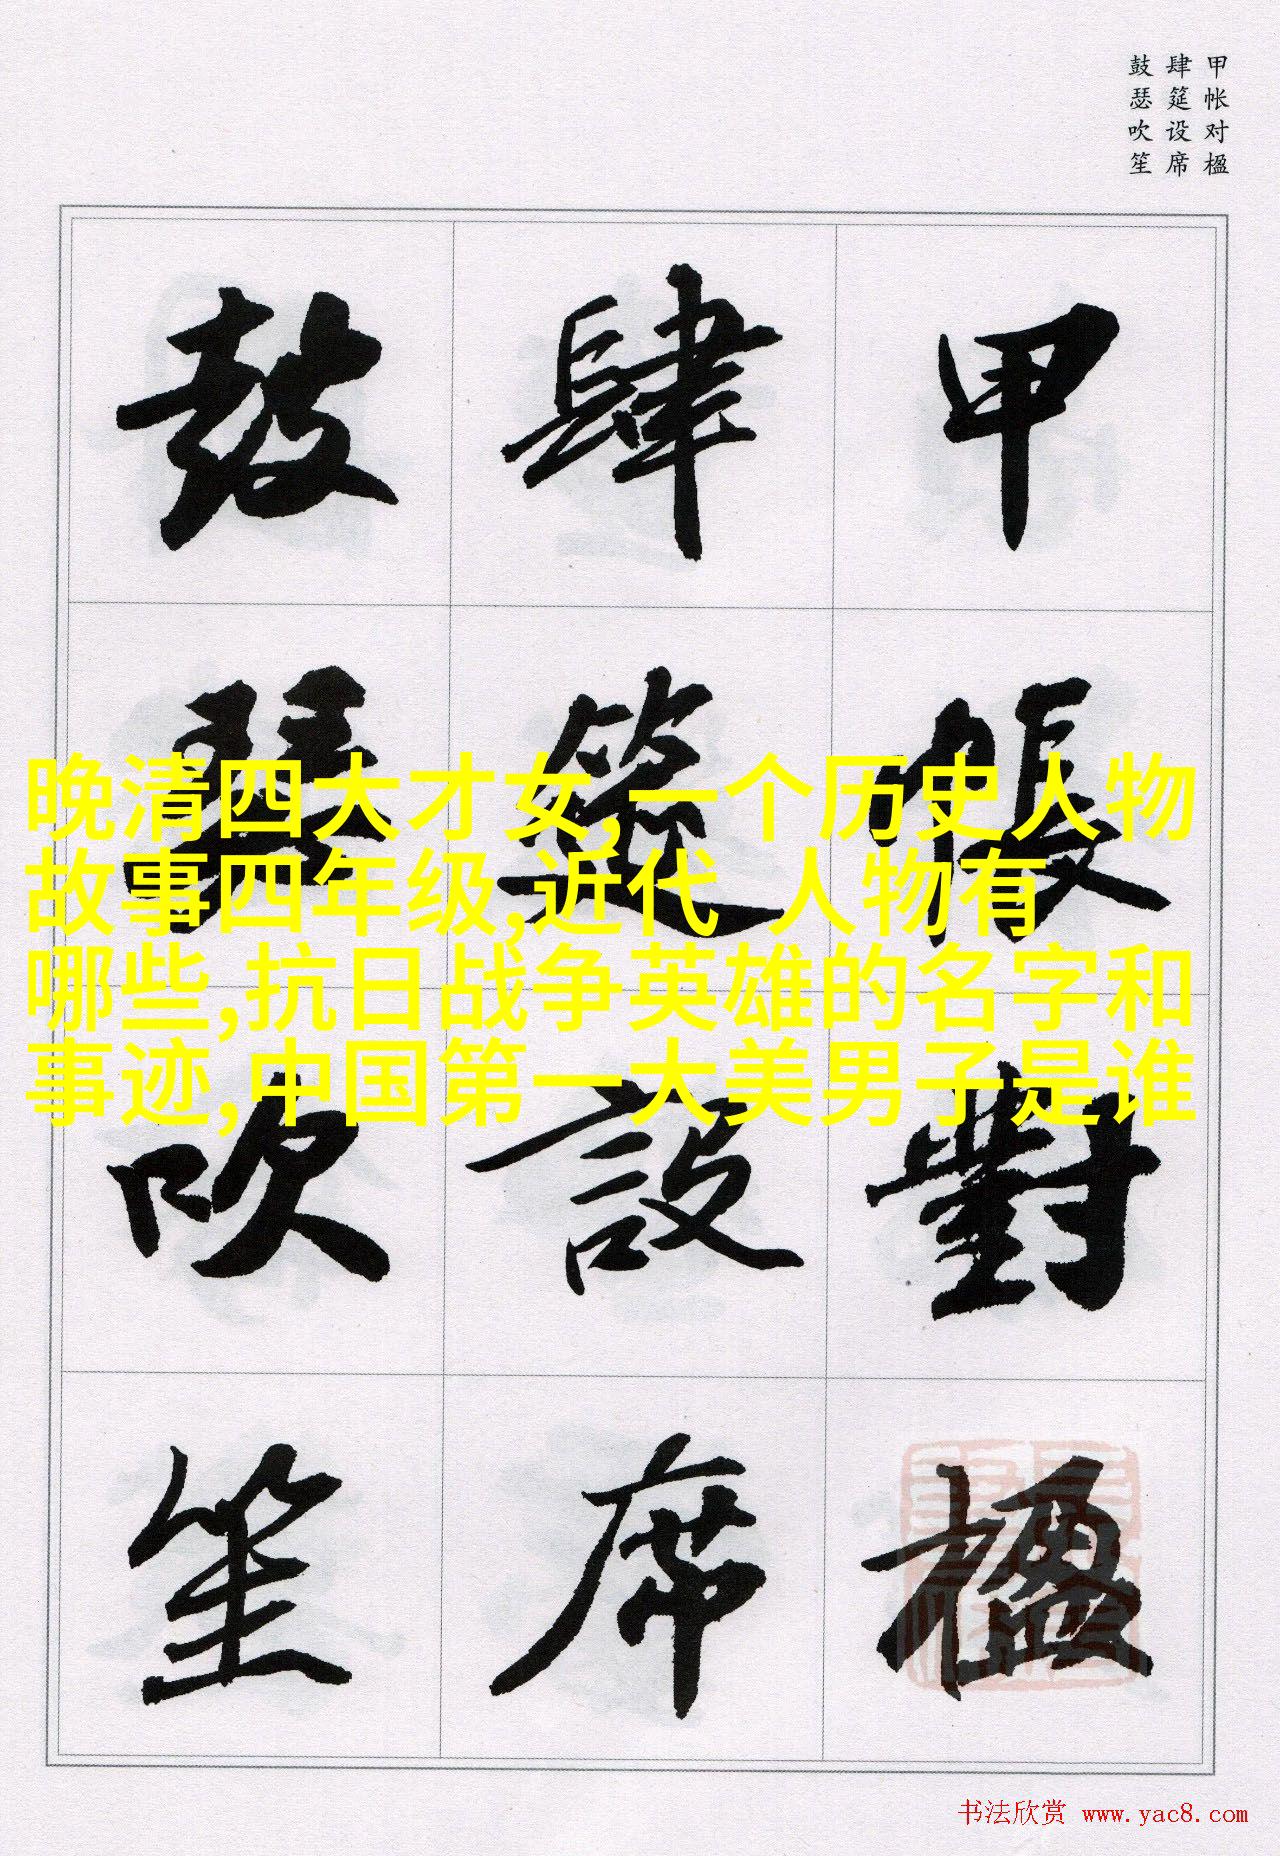 甲帐对楹
肆筵设席
鼓瑟吹笙
甲帳對楹
肆筵設席
鼓瑟吹笙
晚清四大才女,一个历史人物
故事四年级,近代 人物有
哪些,抗日战争英雄的名字和
事迹,中国第一大美男子是谁
书法欣赏 www.yac8.com